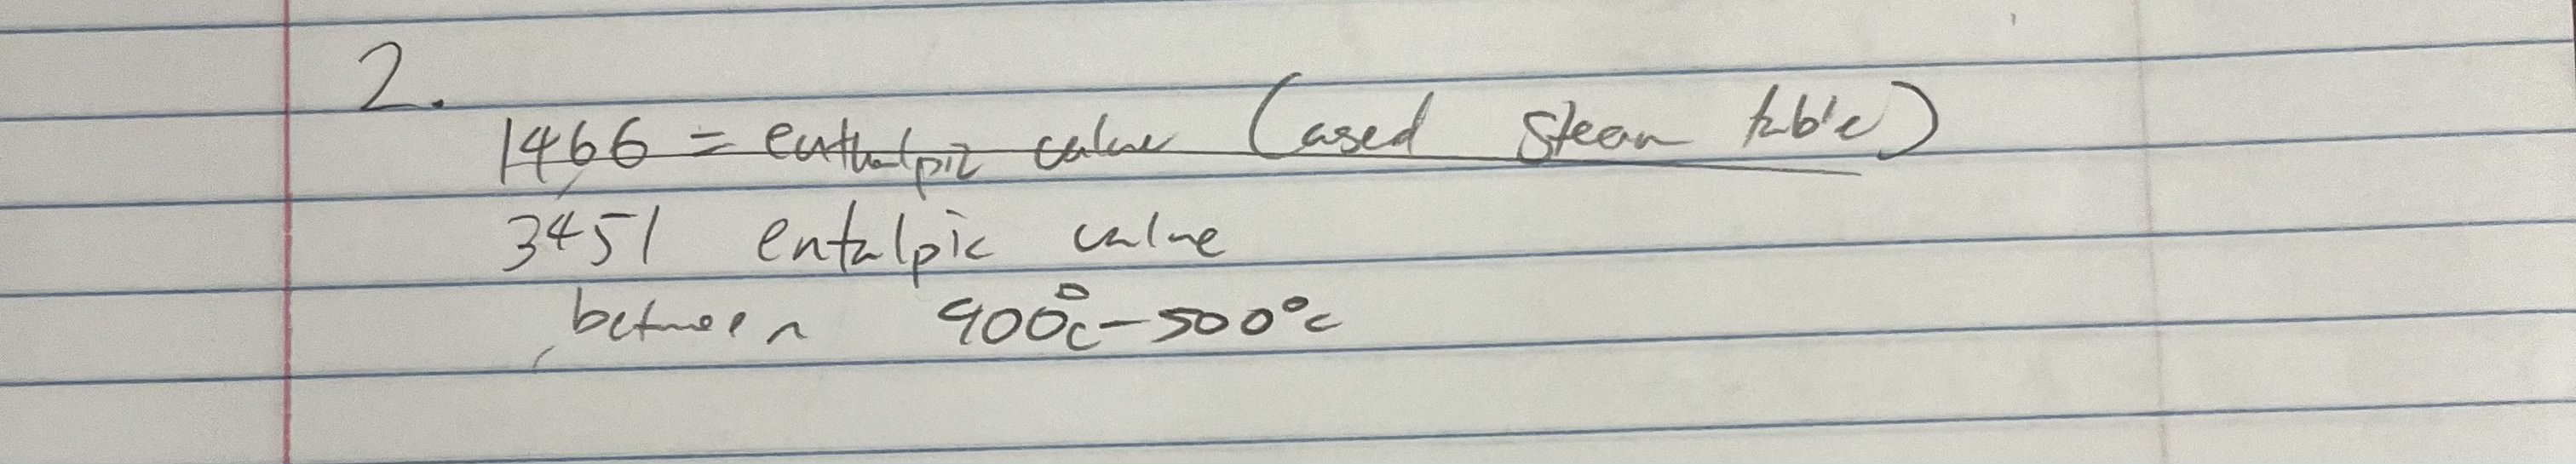 2.
1466 = enthalpic value (ased steam table)
3451 entalpic value
between 400°c-500°c